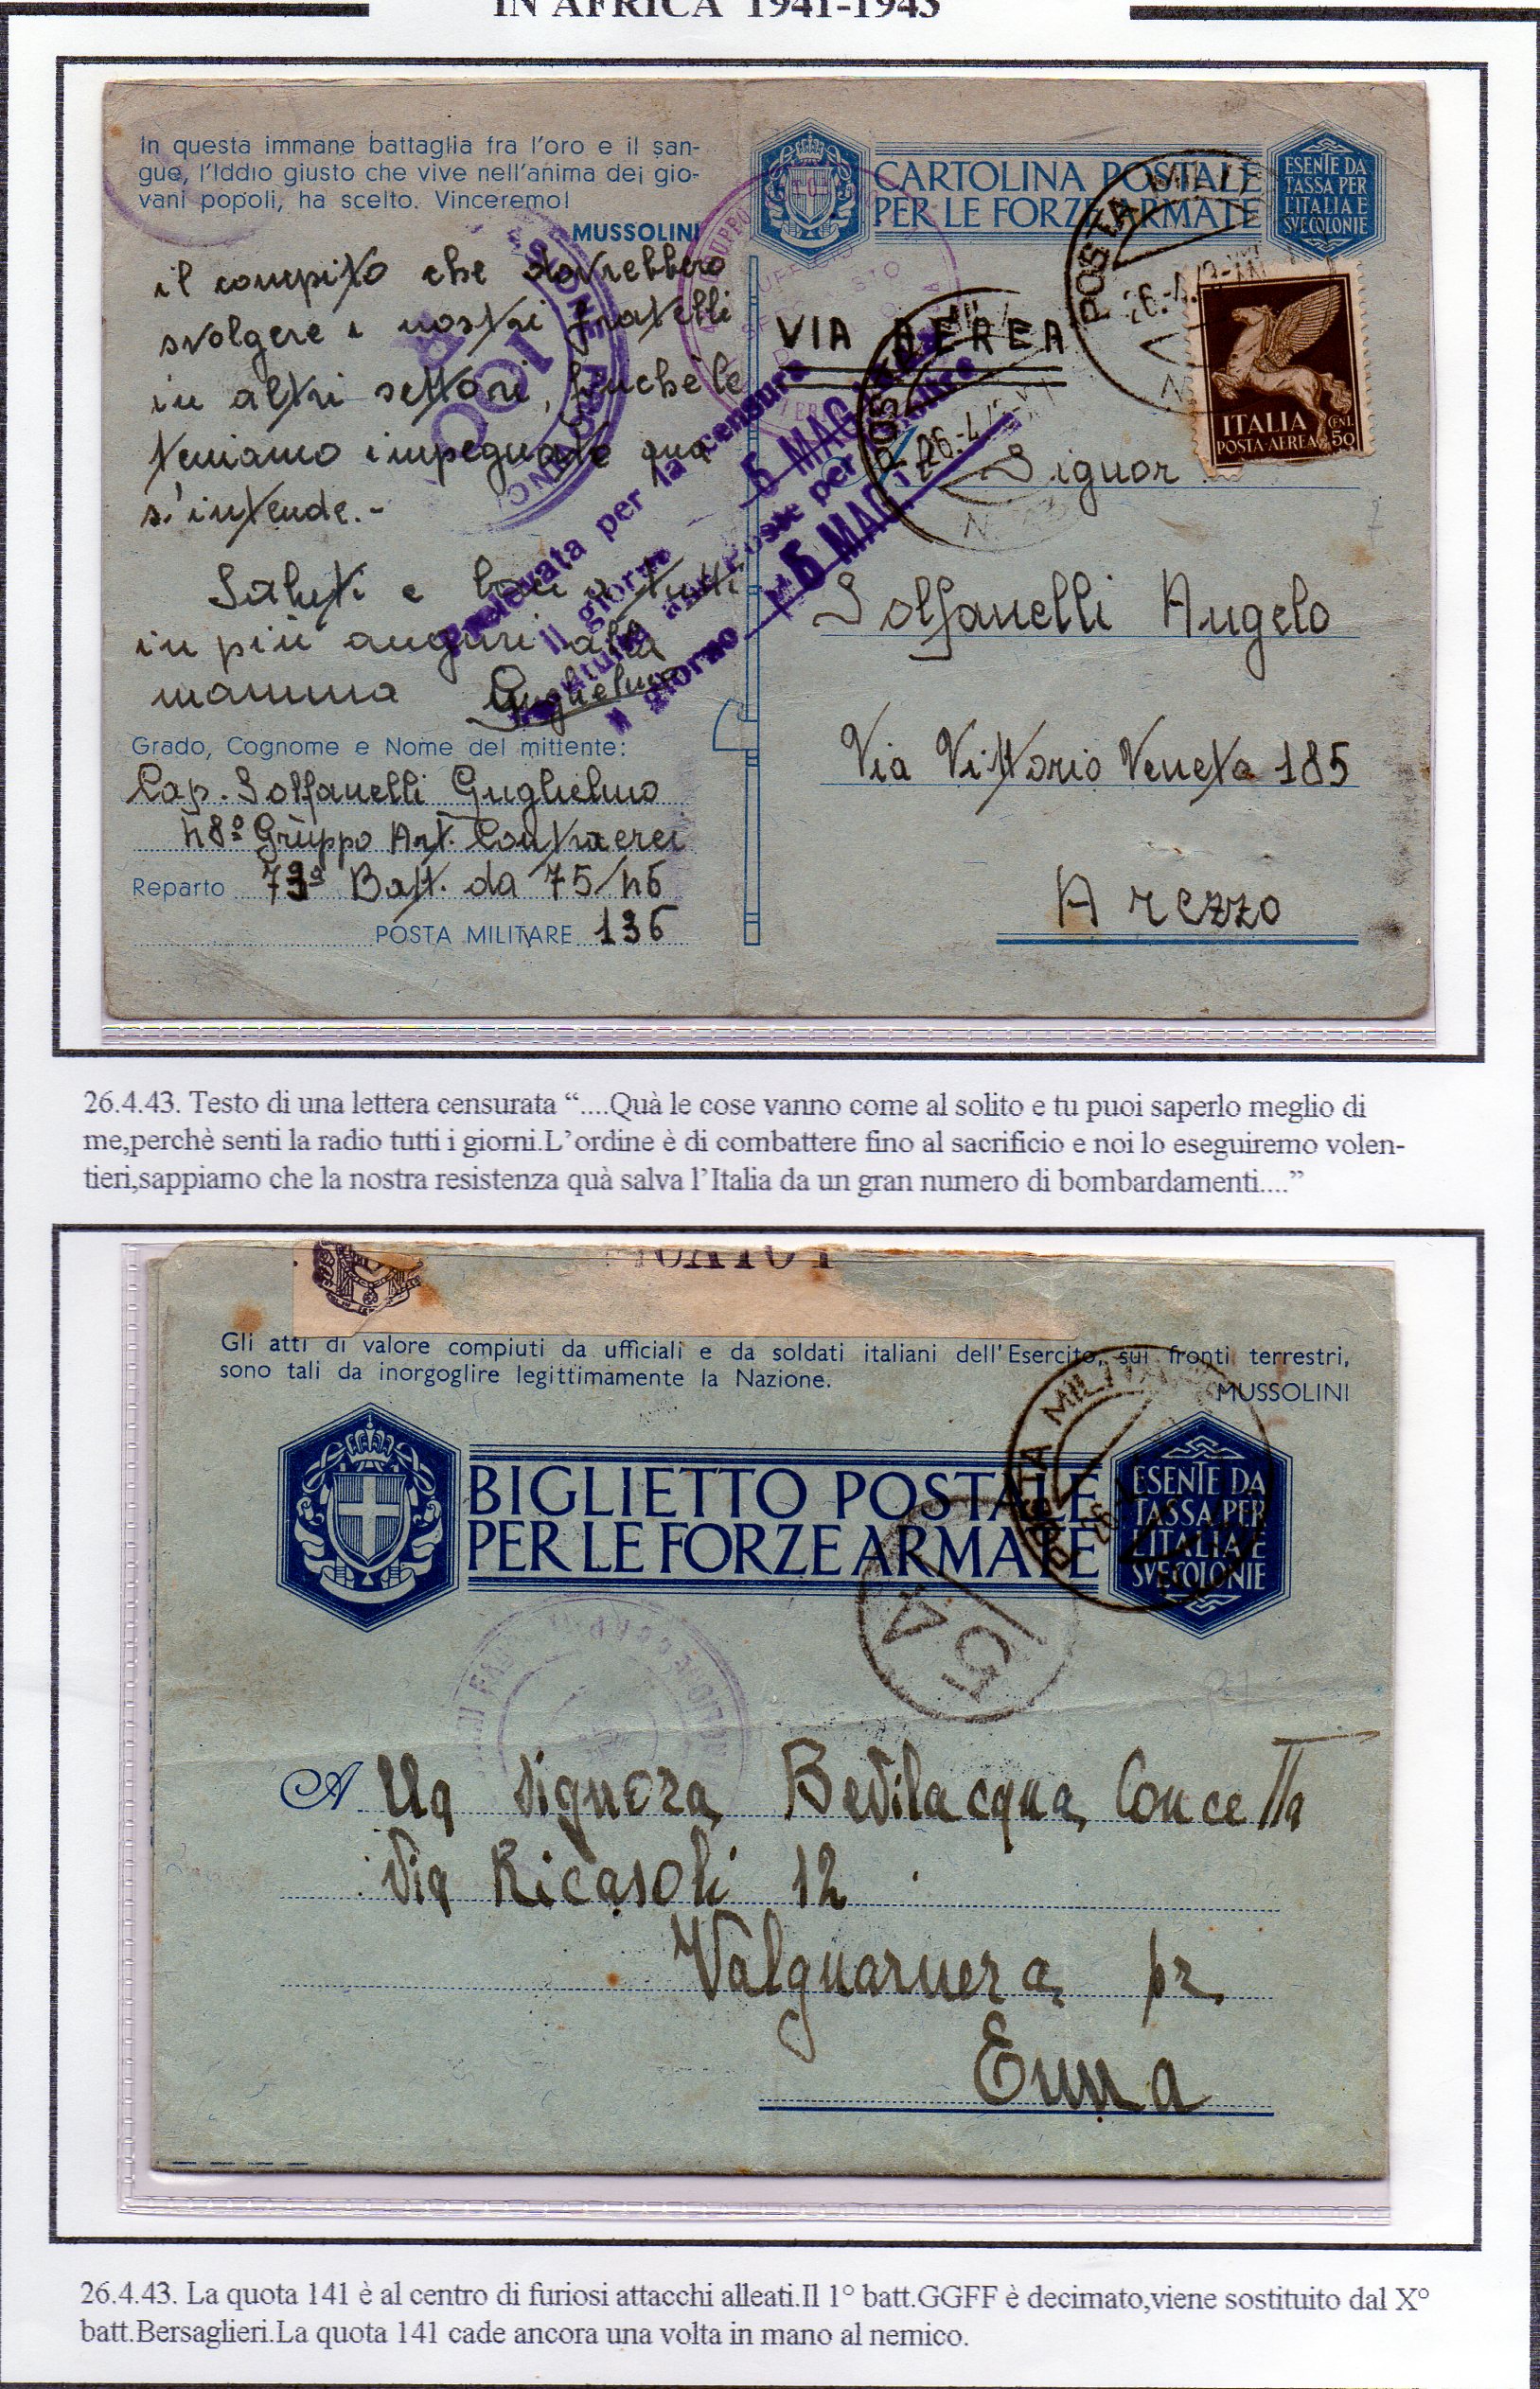 IN AFRICA 1941-1943
In questa immane battaglia fra l'oro e il san-
gue, l'Iddio giusto che vive nell'anima dei gio-
vani popoli, ha scelto. Vinceremo!
MUSSOLINI
il compito che dovrebbero
svolgere i nostri fratelli
in altri settori, finchè le
teniamo impegnate qua
s'intende.-
Saluti e baci a tutti
in più auguri alla
mamma Guglielmo
Grado, Cognome e Nome del mittente:
Cap. Solfanelli Guglielmo
48º Gruppo Art. Contraerei
Reparto 73ª Batt. da 75/46
POSTA MILITARE 136
CARTOLINA POSTALE
PER LE FORZE ARMATE
ESENTE DA
TASSA PER
L'ITALIA E
SVE COLONIE
POSTA MILI
26.-4.
VIA AEREA
ITALIA
POSTA-AEREA
CENT. 50
UFFICIO
100
Prelevata per la censura
il giorno 5 MAG.
alle Poste per inoltro
il giorno 5 MAG.
POSTA MIL
26.-4.
N.
Signor
Solfanelli Angelo
Via Vittorio Veneto 185
Arezzo
26.4.43. Testo di una lettera censurata “....Quà le cose vanno come al solito e tu puoi saperlo meglio di
me,perchè senti la radio tutti i giorni.L'ordine è di combattere fino al sacrificio e noi lo eseguiremo volen-
tieri,sappiamo che la nostra resistenza quà salva l'Italia da un gran numero di bombardamenti....”
Gli atti di valore compiuti da ufficiali e da soldati italiani dell'Esercito, sui fronti terrestri,
sono tali da inorgoglire legittimamente la Nazione.
MUSSOLINI
BIGLIETTO POSTALE
PER LE FORZE ARMATE
ESENTE DA
TASSA PER
L'ITALIA E
SVE COLONIE
POSTA MILITARE
26.
5
A
A lla Signora Bevilacqua Concetta
Via Ricasoli 12
Valguarnera pr.
Enna
26.4.43. La quota 141 è al centro di furiosi attacchi alleati.Il 1° batt.GGFF è decimato,viene sostituito dal X°
batt.Bersaglieri.La quota 141 cade ancora una volta in mano al nemico.